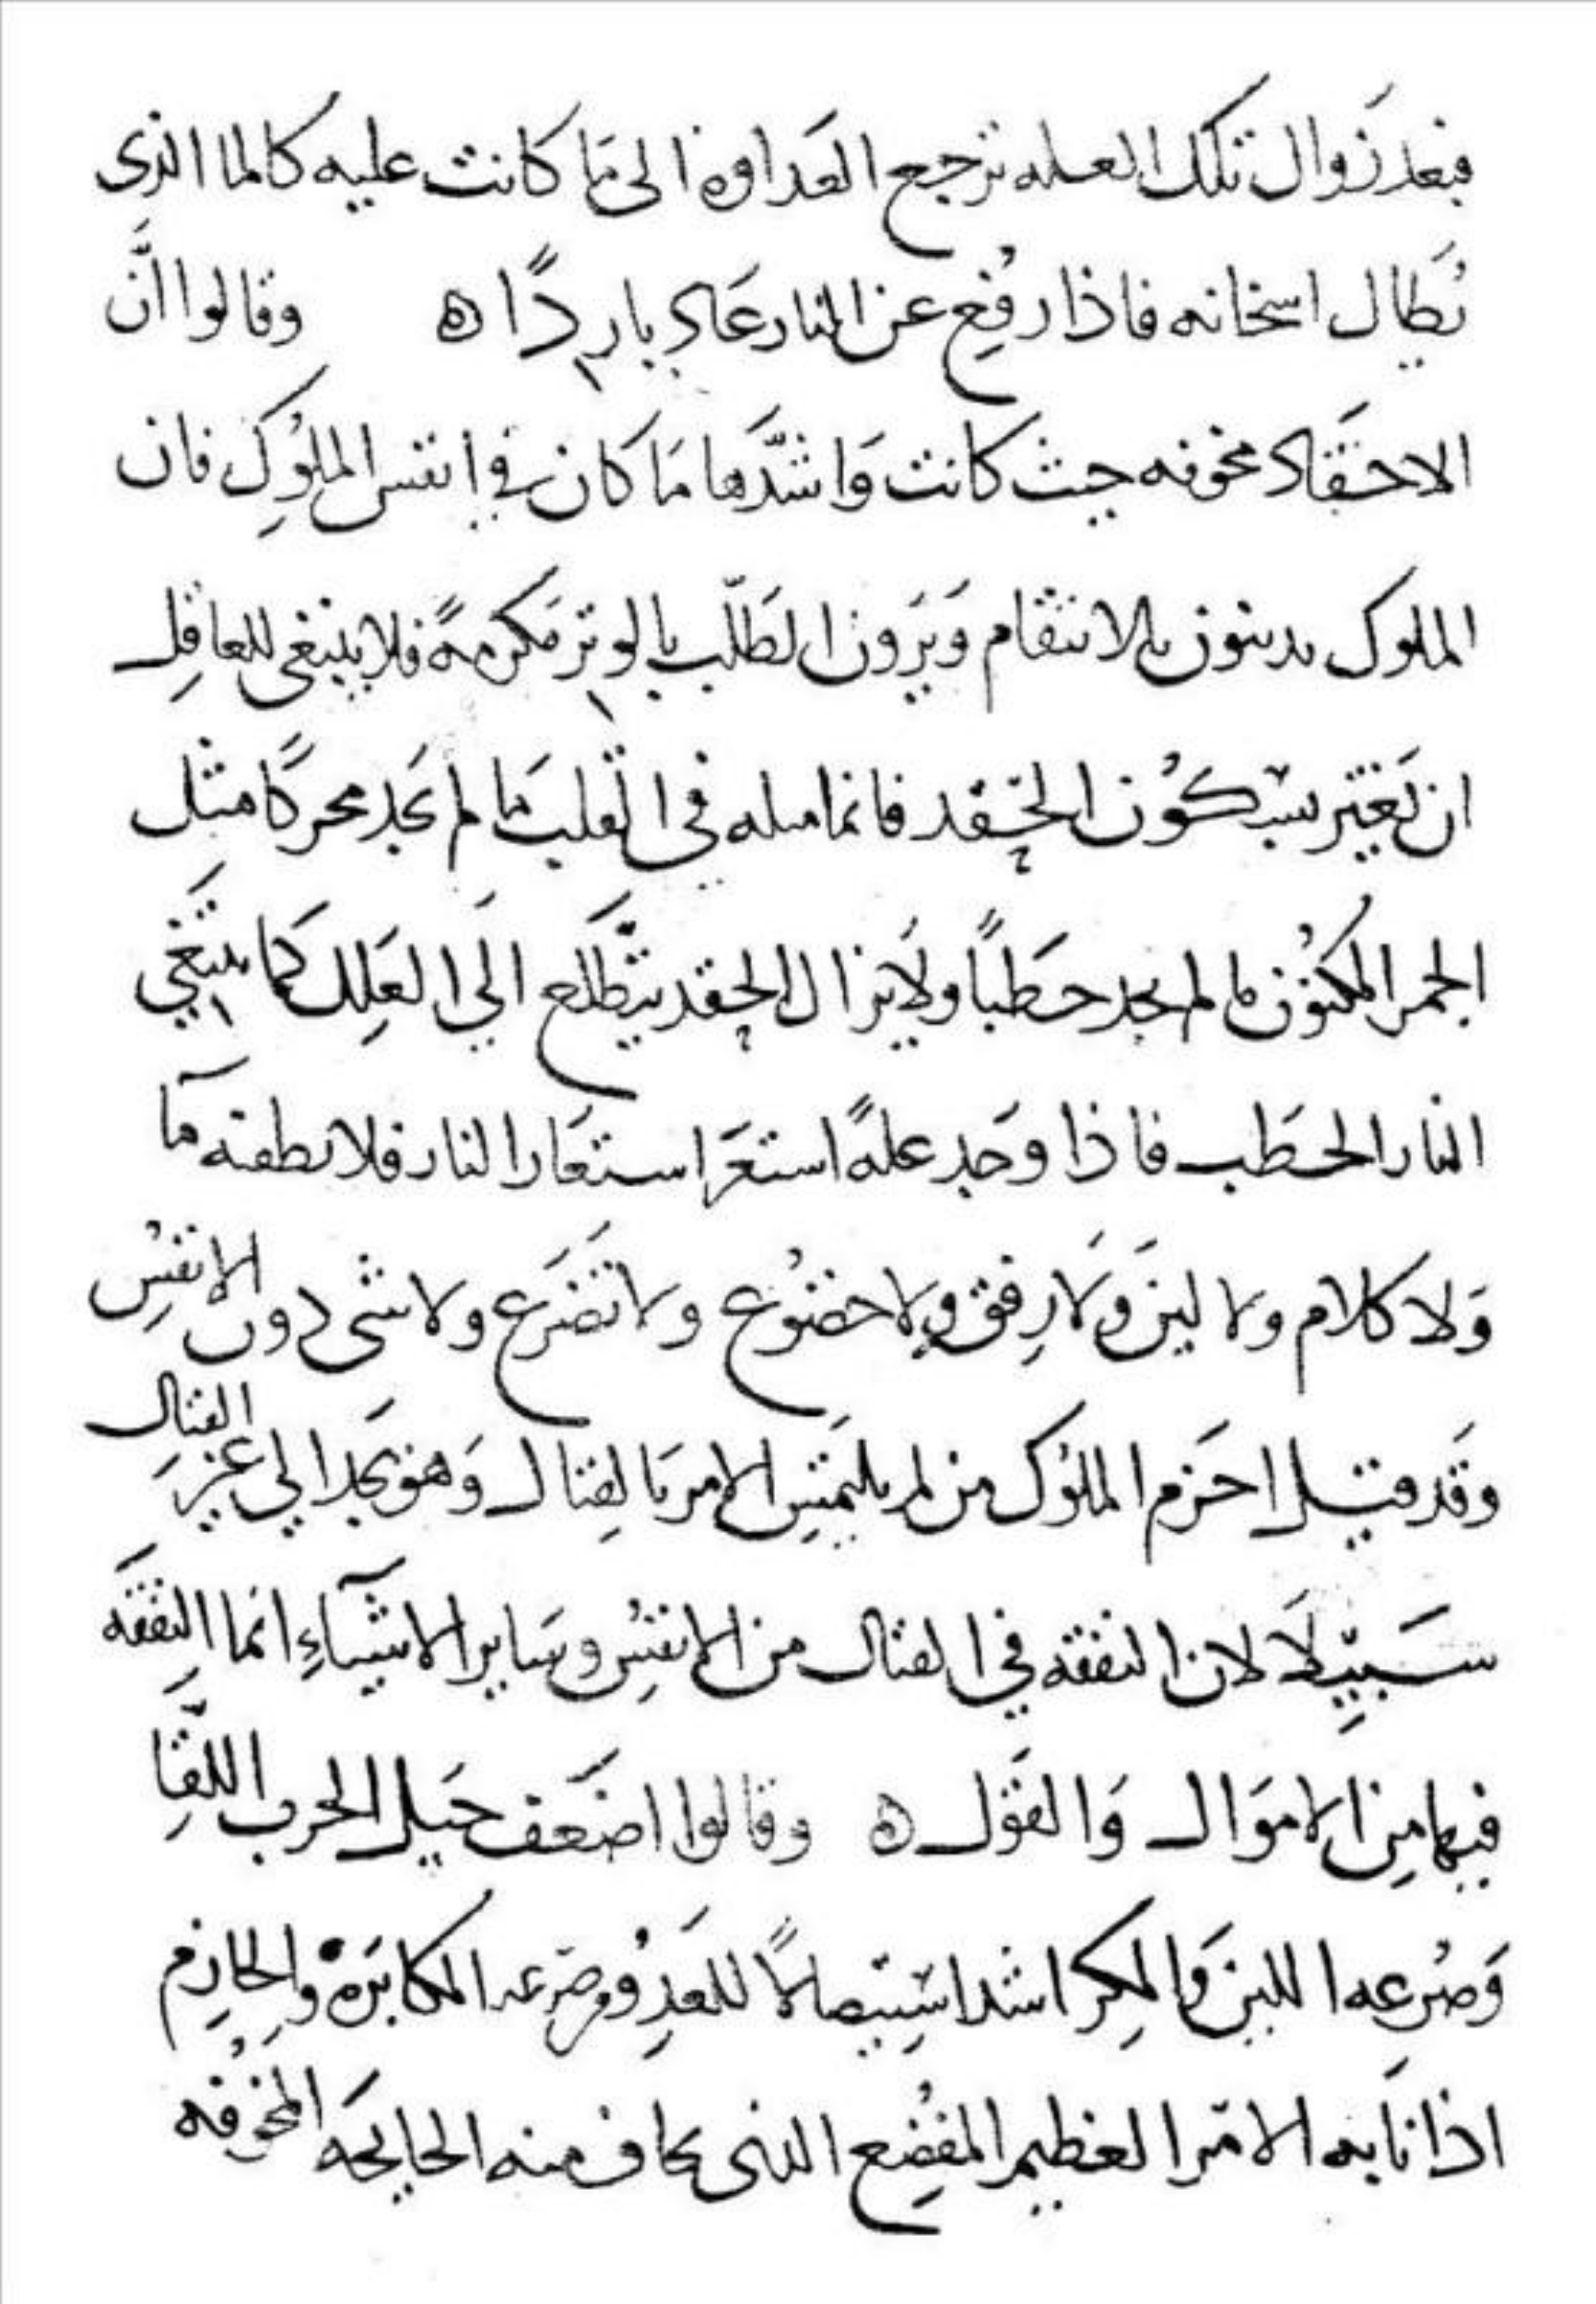 فبعد زوال تلك العله ترجع العداوة الى مَا كانت عليه كالما الذى
نُطَال اسخانه فاذا رفع عن النار عَاد باردًا ه وقالوا انَّ
الاحقاد مخوفه حيث كانت وَاشدّها مَا كان في انفس الملوكِ فان
الملوك يدينون بالانتقام وَيَرون الطَلّب بالوتر مَكرمةً فلا ينبغي للعاقِل
ان يَغتر بسكُون الحِقد فانما مثله في القلب مَا لم يجَد محركًا مثل
الجمر المكنُون ما لم يجد حطَبًا ولَا يزال الحِقد يتَطلع الَي العِلل كَما يبتَغي
النار الحطَب فاذا وَجد علةً استعَر استعَار النار فلا يطفئه مآ
وَلا كلام ولا لين وَلَا رِفق ولا خضُوع ولا تَضَرع ولا شى دون الانفُسِ
وقَد قيل احزَم الملوُك من لم يلتَمِس الامر بَالقِتال وَهوَ يجَد الي غَير القتال
سَبيِلَا لان النفقه في القتال من الانفُسِ وسَاير الاشيَآءِ انما النِفقَه
فيها مِن الامَوَال وَالقَول ه وقالوا اضعَف حيَل الحرب اللقَّا
وَصُرعه اللين وَالمكِر اشد استِيصالًا للعَدوُ من صَرعه المكابَرة وَالحازِم
اذا نَابه الامر العَظيم المفضُع الذى يخاف منه الجايحَه المخُوفه